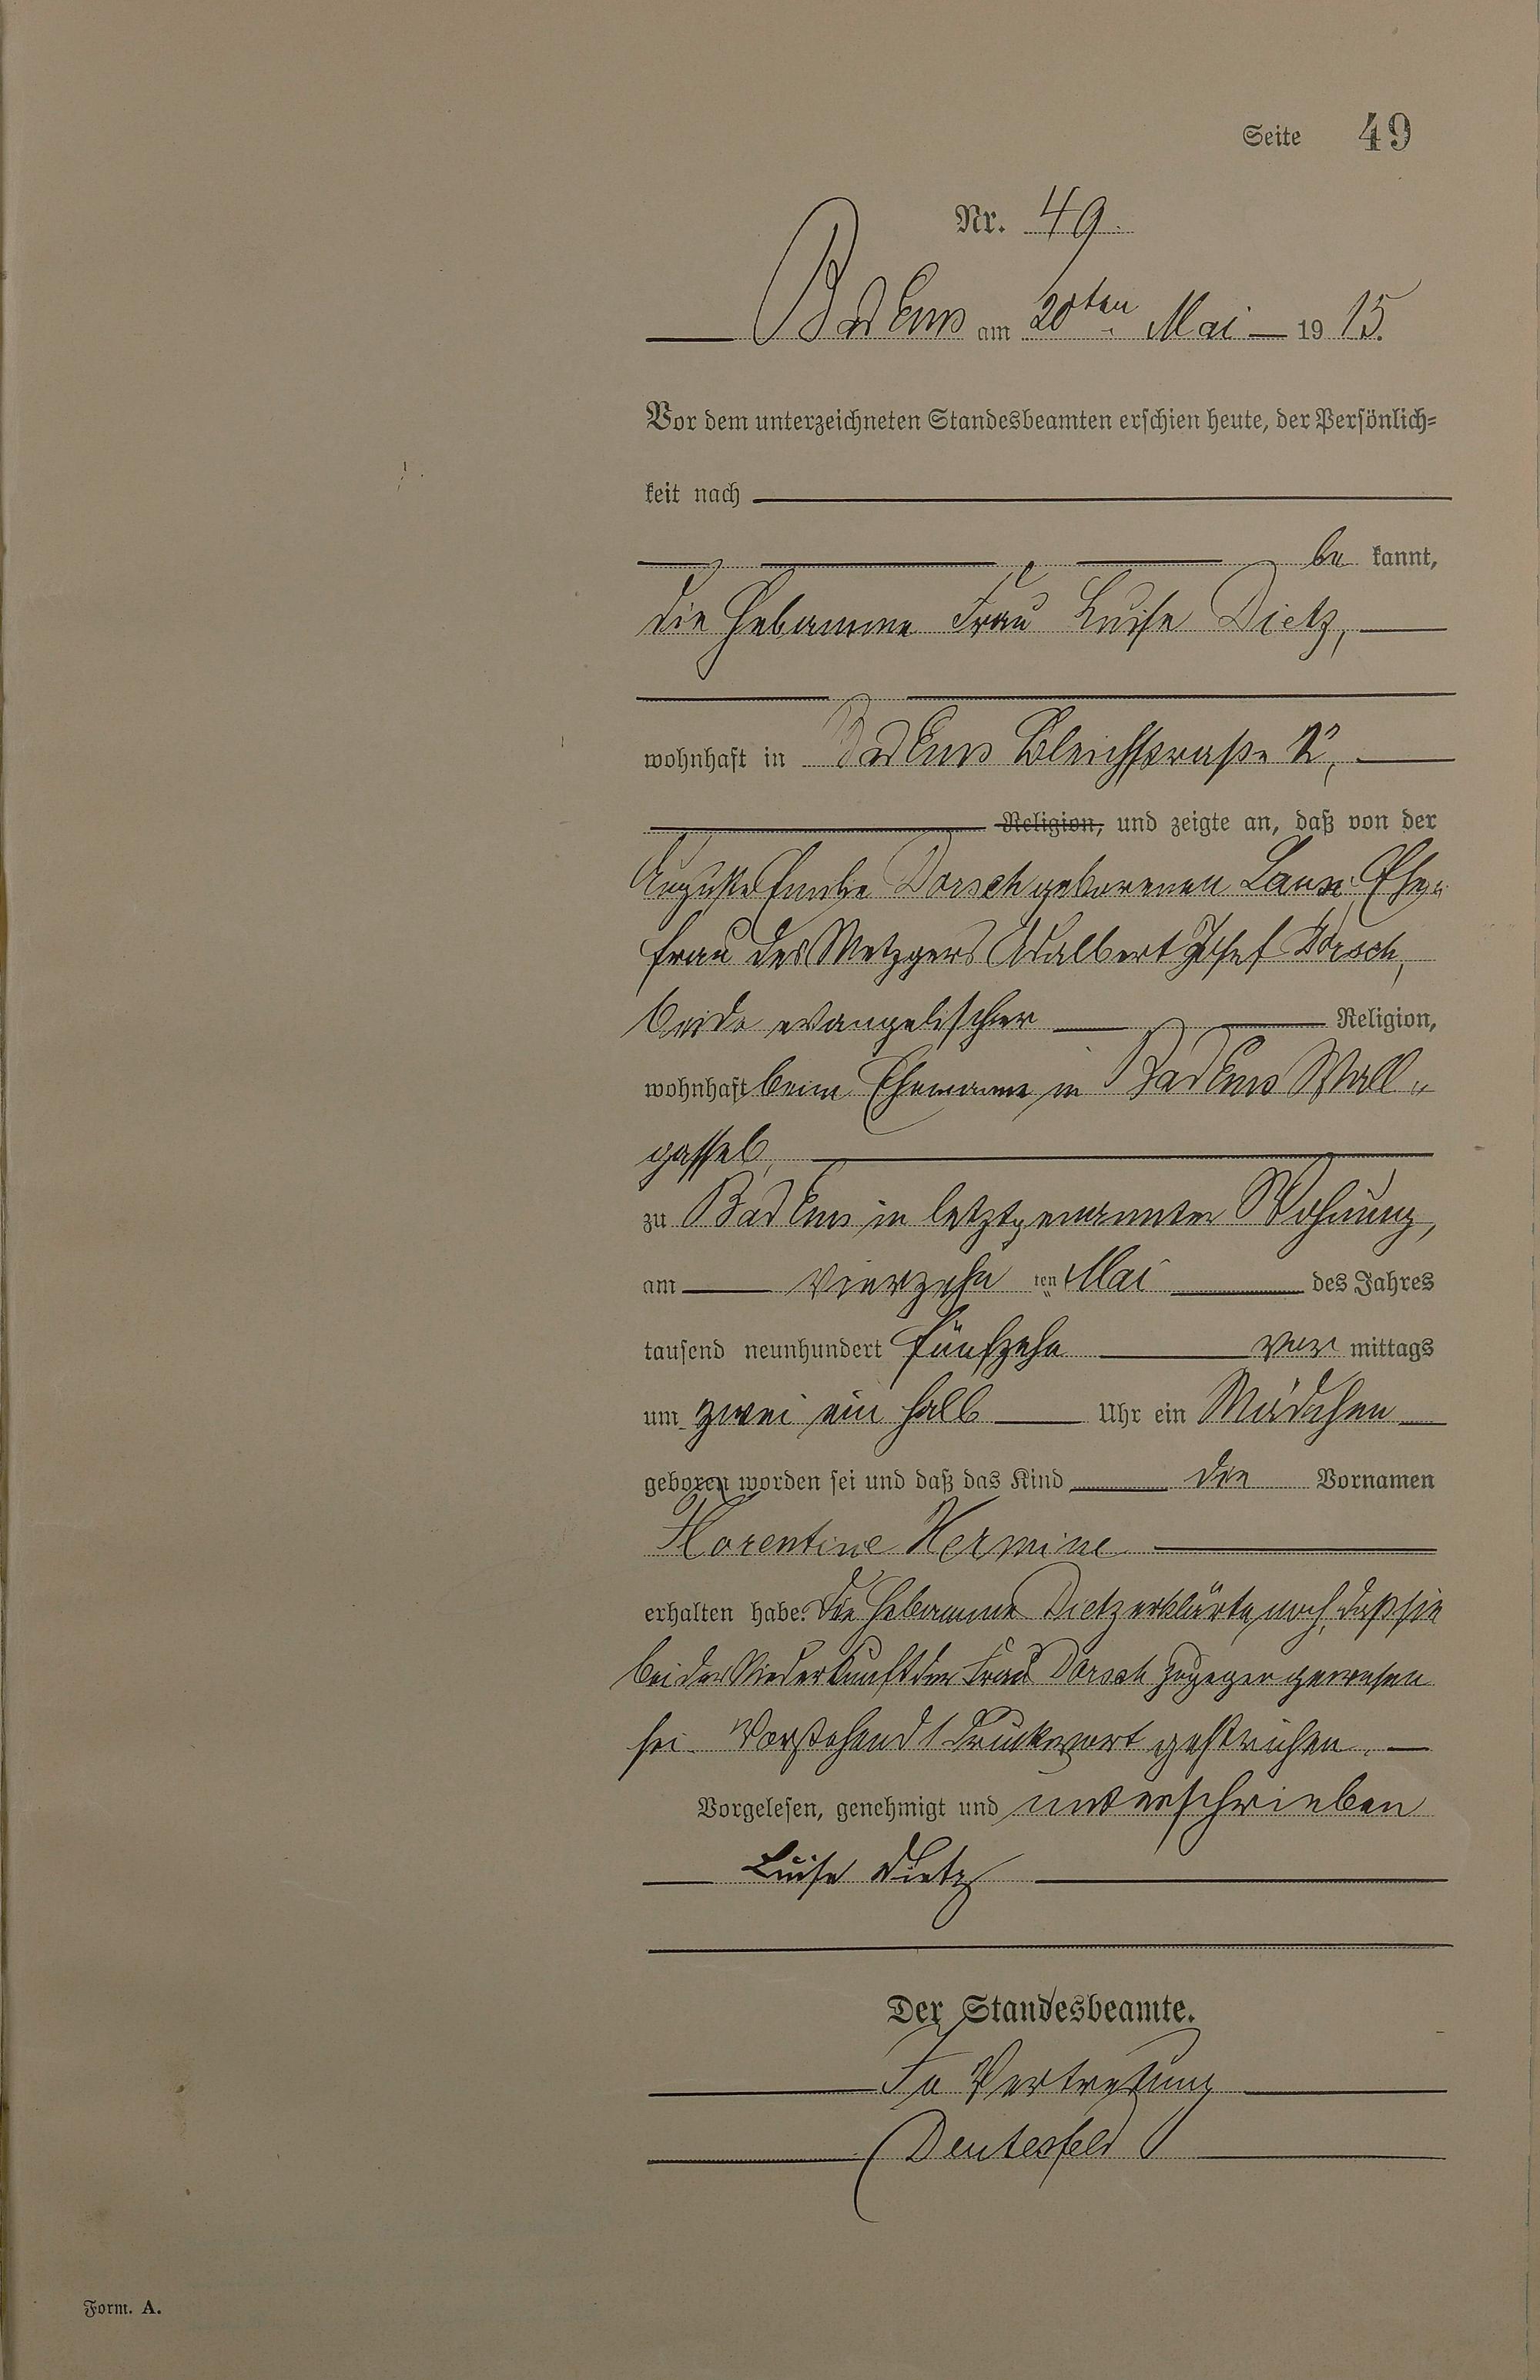 Seite 49
Nr. 49.
Bad Ems am 20ten Mai 1915.
Vor dem unterzeichneten Standesbeamten erschien heute, der Persönlich=
keit nach
be kannt,
die Hebamme Frau Luise Dietz,
wohnhaft in Bad Ems Bleichstraße
Religion, und zeigte an, daß von der
Auguste Emilie Dorsch geborenen Ehe„
frau des Metzgers Adalbert Josef Dorsch,
beide evangelischer Religion,
wohnhaft beim Ehemanne in Bad Ems Wall„
gasse
zu Bad Ems in letztgenannter Wohnung,
am vierzehn ten Mai des Jahres
tausend neunhundert fünfzehn vor mittags
um zwei ein halb Uhr ein Mädchen
geboren worden sei und daß das Kind die Vornamen
Florentine Hermine
erhalten habe. Die Hebamme Dietz erklärte noch, daß sie
bei der Niederkunft der Frau Dorsch zugegen gewesen
sei. Vorstehend 1 Druckwort gestrichen.
Vorgelesen, genehmigt und unterschrieben
Luise Dietz
Der Standesbeamte.
In Vertretung
Deutesfeld
Form. A.